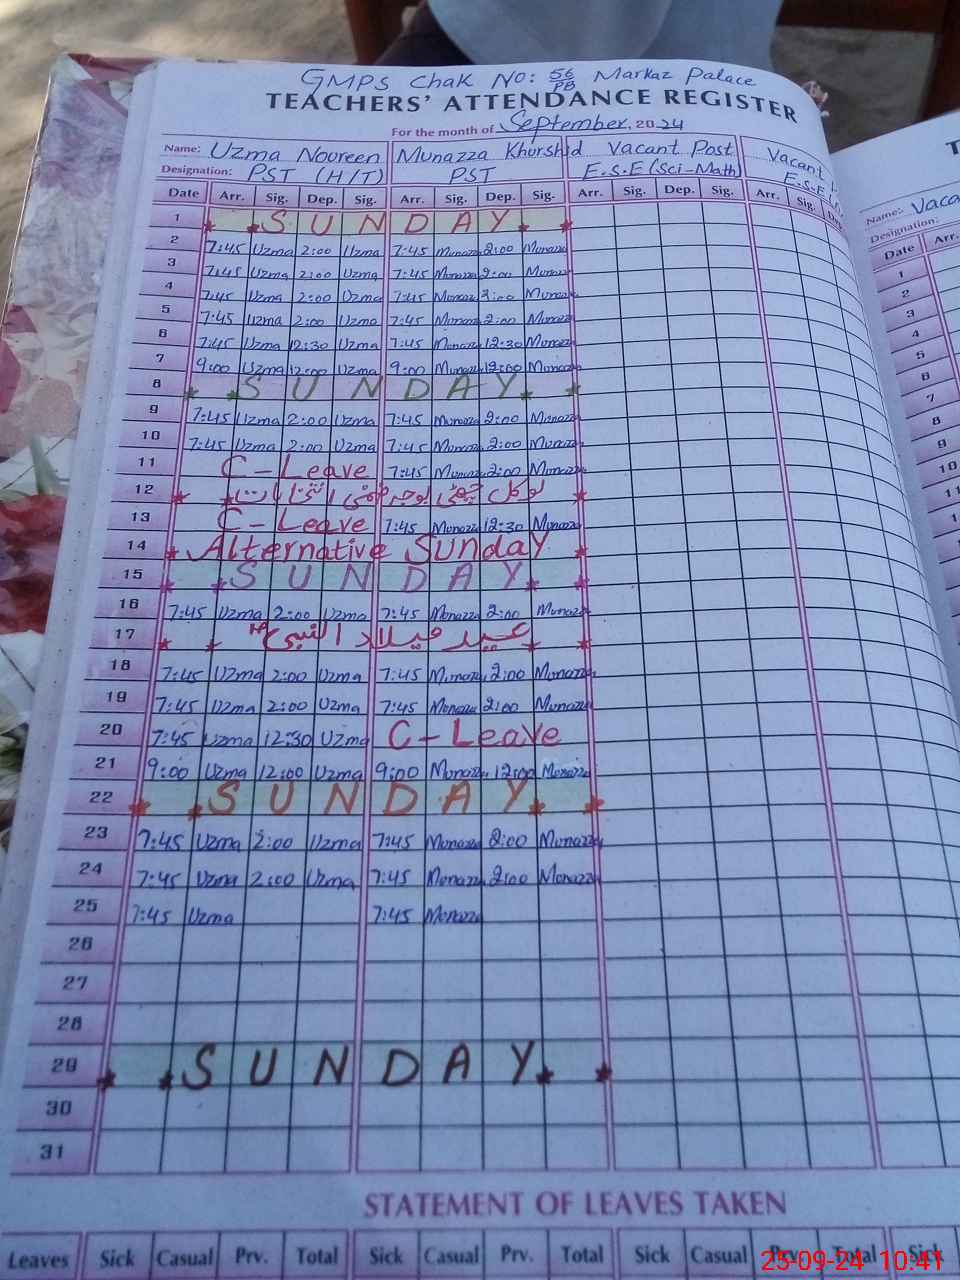 GMPS Chak No: 56/PB Markaz Palace
TEACHERS' ATTENDANCE REGISTER
For the month of September, 2024
Name: Uzma Noureen Munazza Khurshid Vacant Post Vacant
Designation: PST (H/T) PST E.S.E (Sci-Math) E.S.E
Date Arr. Sig. Dep. Sig. Arr. Sig. Dep. Sig. Arr. Sig. Dep. Sig. Arr. Sig. Dep.
1 SUNDAY
2 7:45 Uzma 2:00 Uzma 7:45 Munazza 2:00 Munazza
3 7:45 Uzma 2:00 Uzma 7:45 Munazza 2:00 Munazza
4 7:45 Uzma 2:00 Uzma 7:45 Munazza 2:00 Munazza
5 7:45 Uzma 2:00 Uzma 7:45 Munazza 2:00 Munazza
6 7:45 Uzma 12:30 Uzma 7:45 Munazza 12:30 Munazza
7 9:00 Uzma 12:00 Uzma 9:00 Munazza 12:00 Munazza
8 SUNDAY
9 7:45 Uzma 2:00 Uzma 7:45 Munazza 2:00 Munazza
10 7:45 Uzma 2:00 Uzma 7:45 Munazza 2:00 Munazza
11 C-Leave 7:45 Munazza 2:00 Munazza
12 لوکل چھٹی بوجہ ضمنی انتخابات
13 C-Leave 7:45 Munazza 12:30 Munazza
14 Alternative Sunday
15 SUNDAY
16 7:45 Uzma 2:00 Uzma 7:45 Munazza 2:00 Munazza
17 عید میلاد النبیؐ
18 7:45 Uzma 2:00 Uzma 7:45 Munazza 2:00 Munazza
19 7:45 Uzma 2:00 Uzma 7:45 Munazza 2:00 Munazza
20 7:45 Uzma 12:30 Uzma C-Leave
21 9:00 Uzma 12:00 Uzma 9:00 Munazza 12:00 Munazza
22 SUNDAY
23 7:45 Uzma 2:00 Uzma 7:45 Munazza 2:00 Munazza
24 7:45 Uzma 2:00 Uzma 7:45 Munazza 2:00 Munazza
25 7:45 Uzma 7:45 Munazza
26
27
28
29 SUNDAY
30
31
STATEMENT OF LEAVES TAKEN
Leaves Sick Casual Prv. Total Sick Casual Prv. Total Sick Casual Prv. Total Sick
Name: Vaca
Designation:
Date Arr.
1
2
3
4
5
6
7
8
9
10
11
25-09-24 10:41